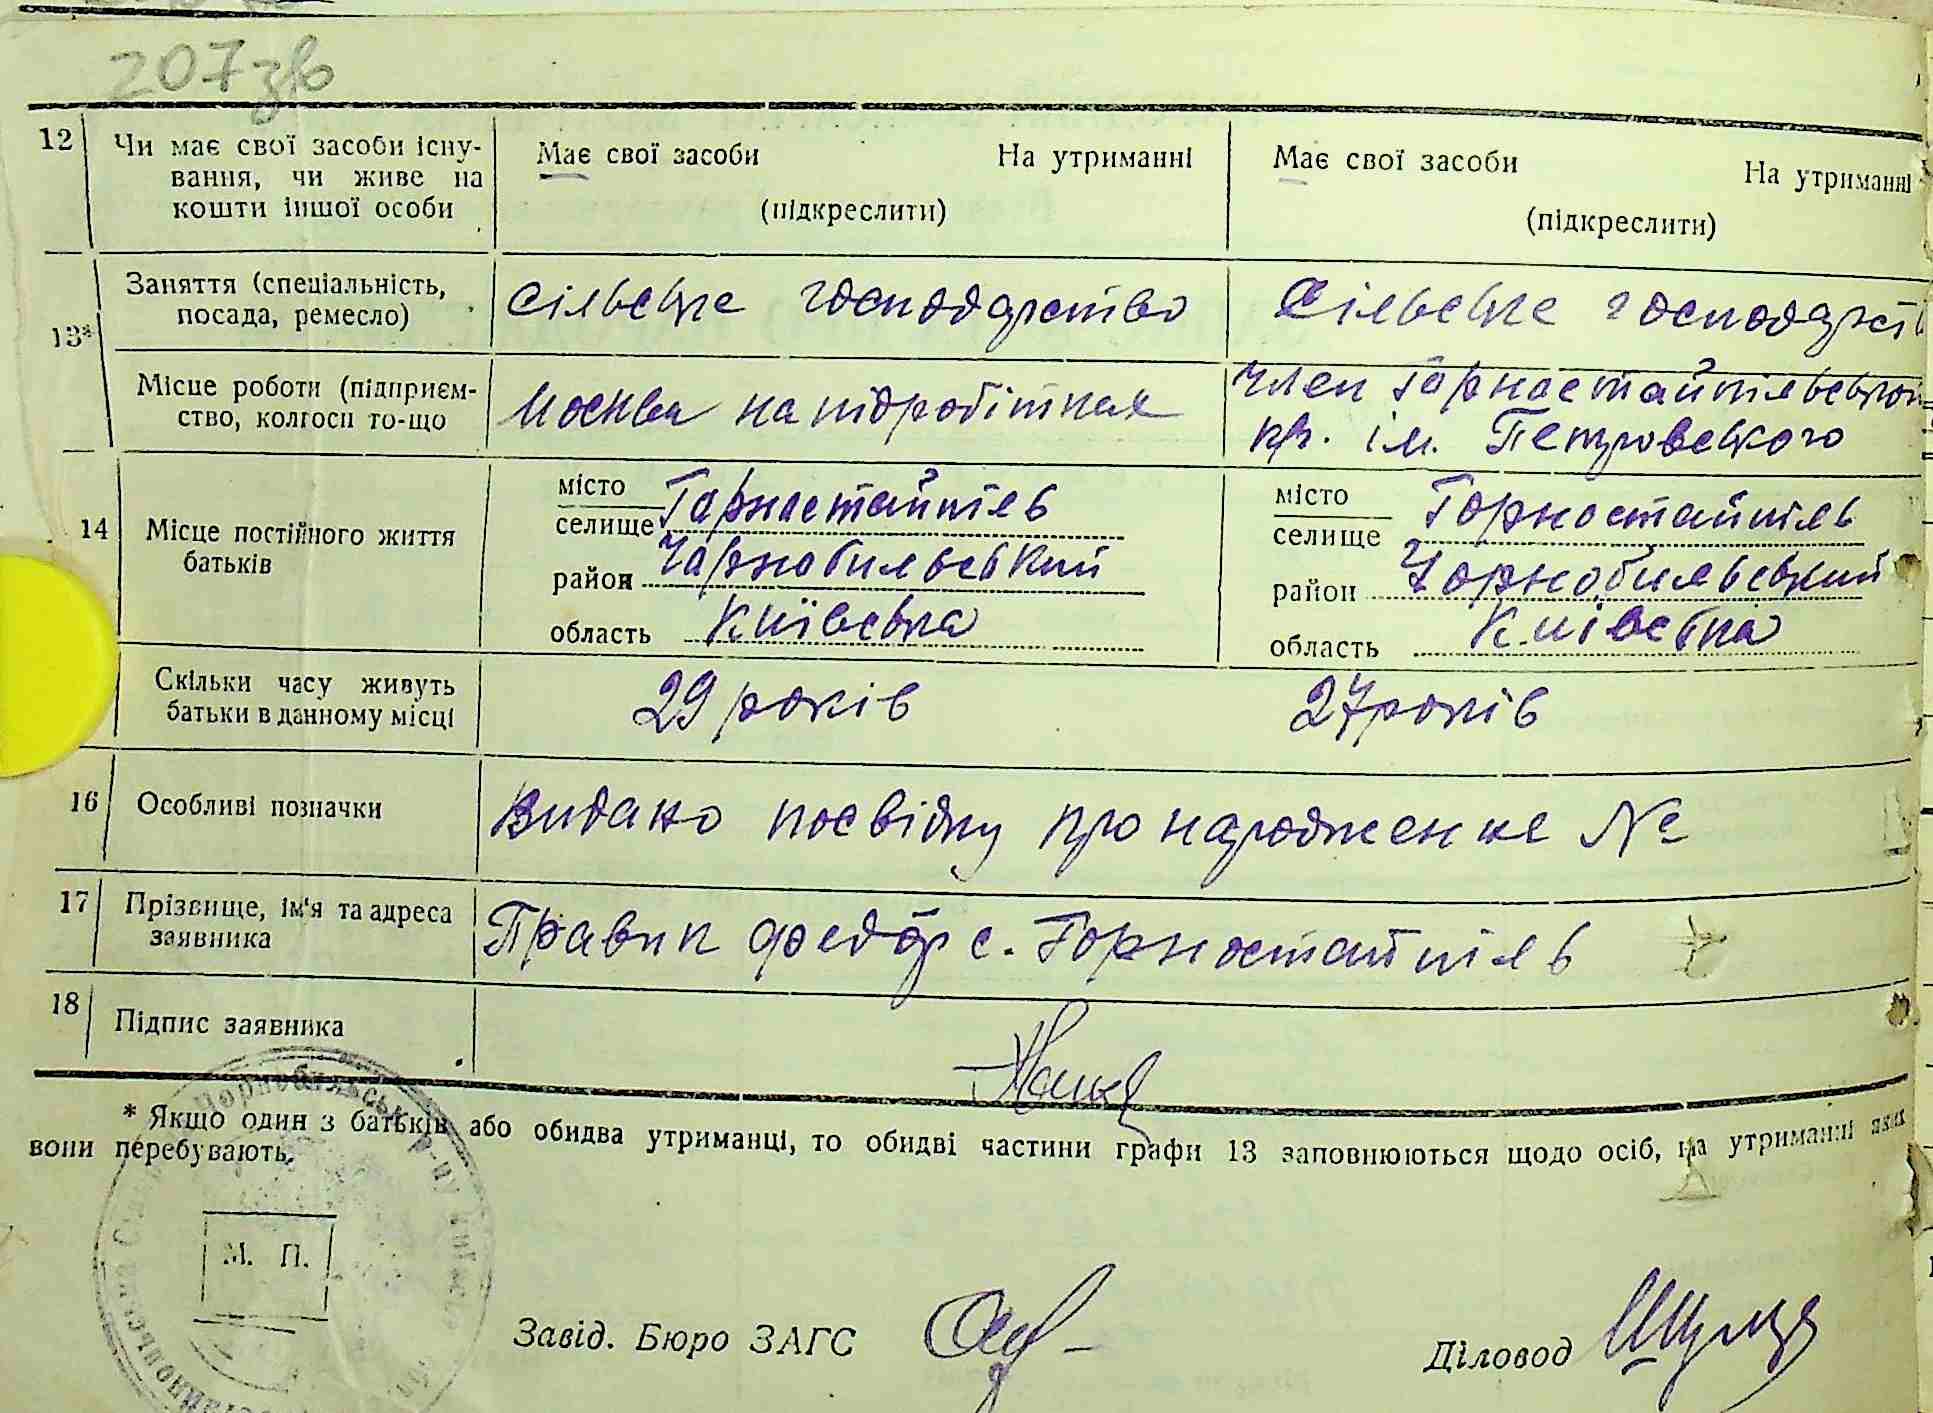 207 зв
12 Чи має свої засоби існу-
вання, чи живе на
кошти іншої особи
Має свої засоби На утриманні
(підкреслити)
Має свої засоби На утриманні
(підкреслити)
13*
Заняття (спеціальність,
посада, ремесло)
сільське господарство
Сільське господарств
Місце роботи (підприєм-
ство, колгосп то-що
Москва на підробітках
член Горностайпільської
кг. ім. Петровського
14 Місце постійного життя
батьків
місто
селище Горностайпіль
район Чорнобильський
область Київська
місто
селище Горностайпіль
район Чорнобильський
область Київська
Скільки часу живуть
батьки в данному місці
29 років
27 років
16 Особливі позначки
Видано посвідку про народження №
17 Прізвище, ім'я та адреса
заявника
Правик Федор с. Горностайпіль
18 Підпис заявника
* Якщо один з батьків або обидва утриманці, то обидві частини графи 13 заповнюються щодо осіб, на утриманні яких
вони перебувають.
М. П.
Завід. Бюро ЗАГС
Діловод